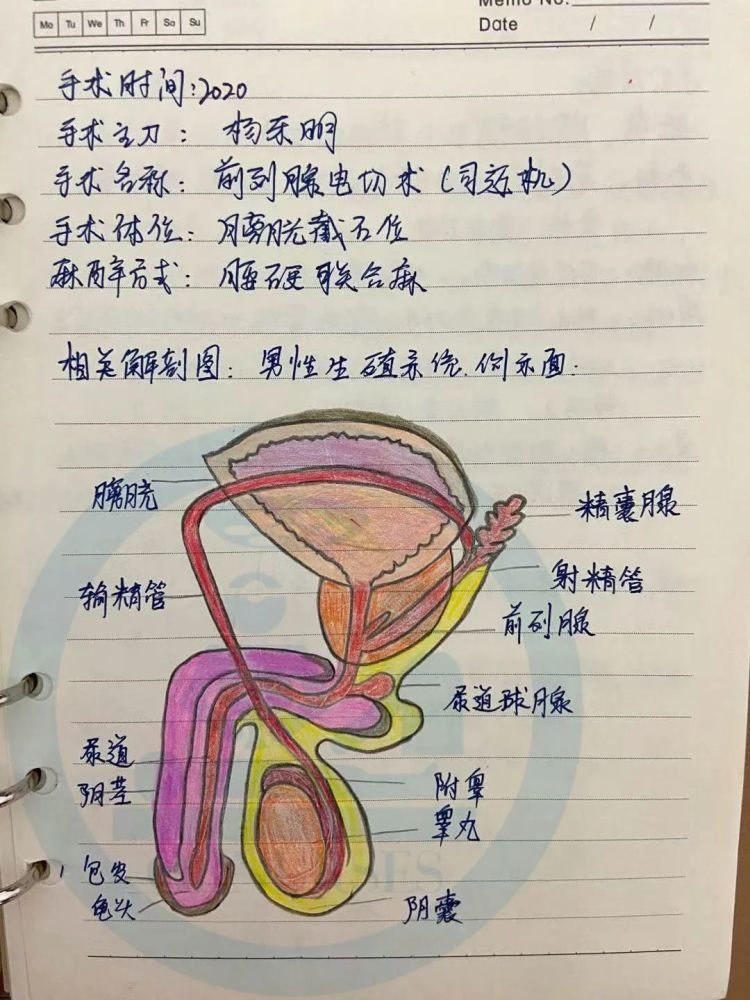 Memo No.
Mo Tu We Th Fr Sa Su
Date / /
手术时间:2020
手术主刀: 杨乐明
手术名称: 前列腺电切术(司迈机)
手术体位: 膀胱截石位
麻醉方式: 腰硬联合麻
相关解剖图: 男性生殖系统.侧示面:
膀胱
精囊腺
输精管
射精管
前列腺
尿道球腺
尿道
阴茎
附睾
睾丸
包皮
龟头
阴囊